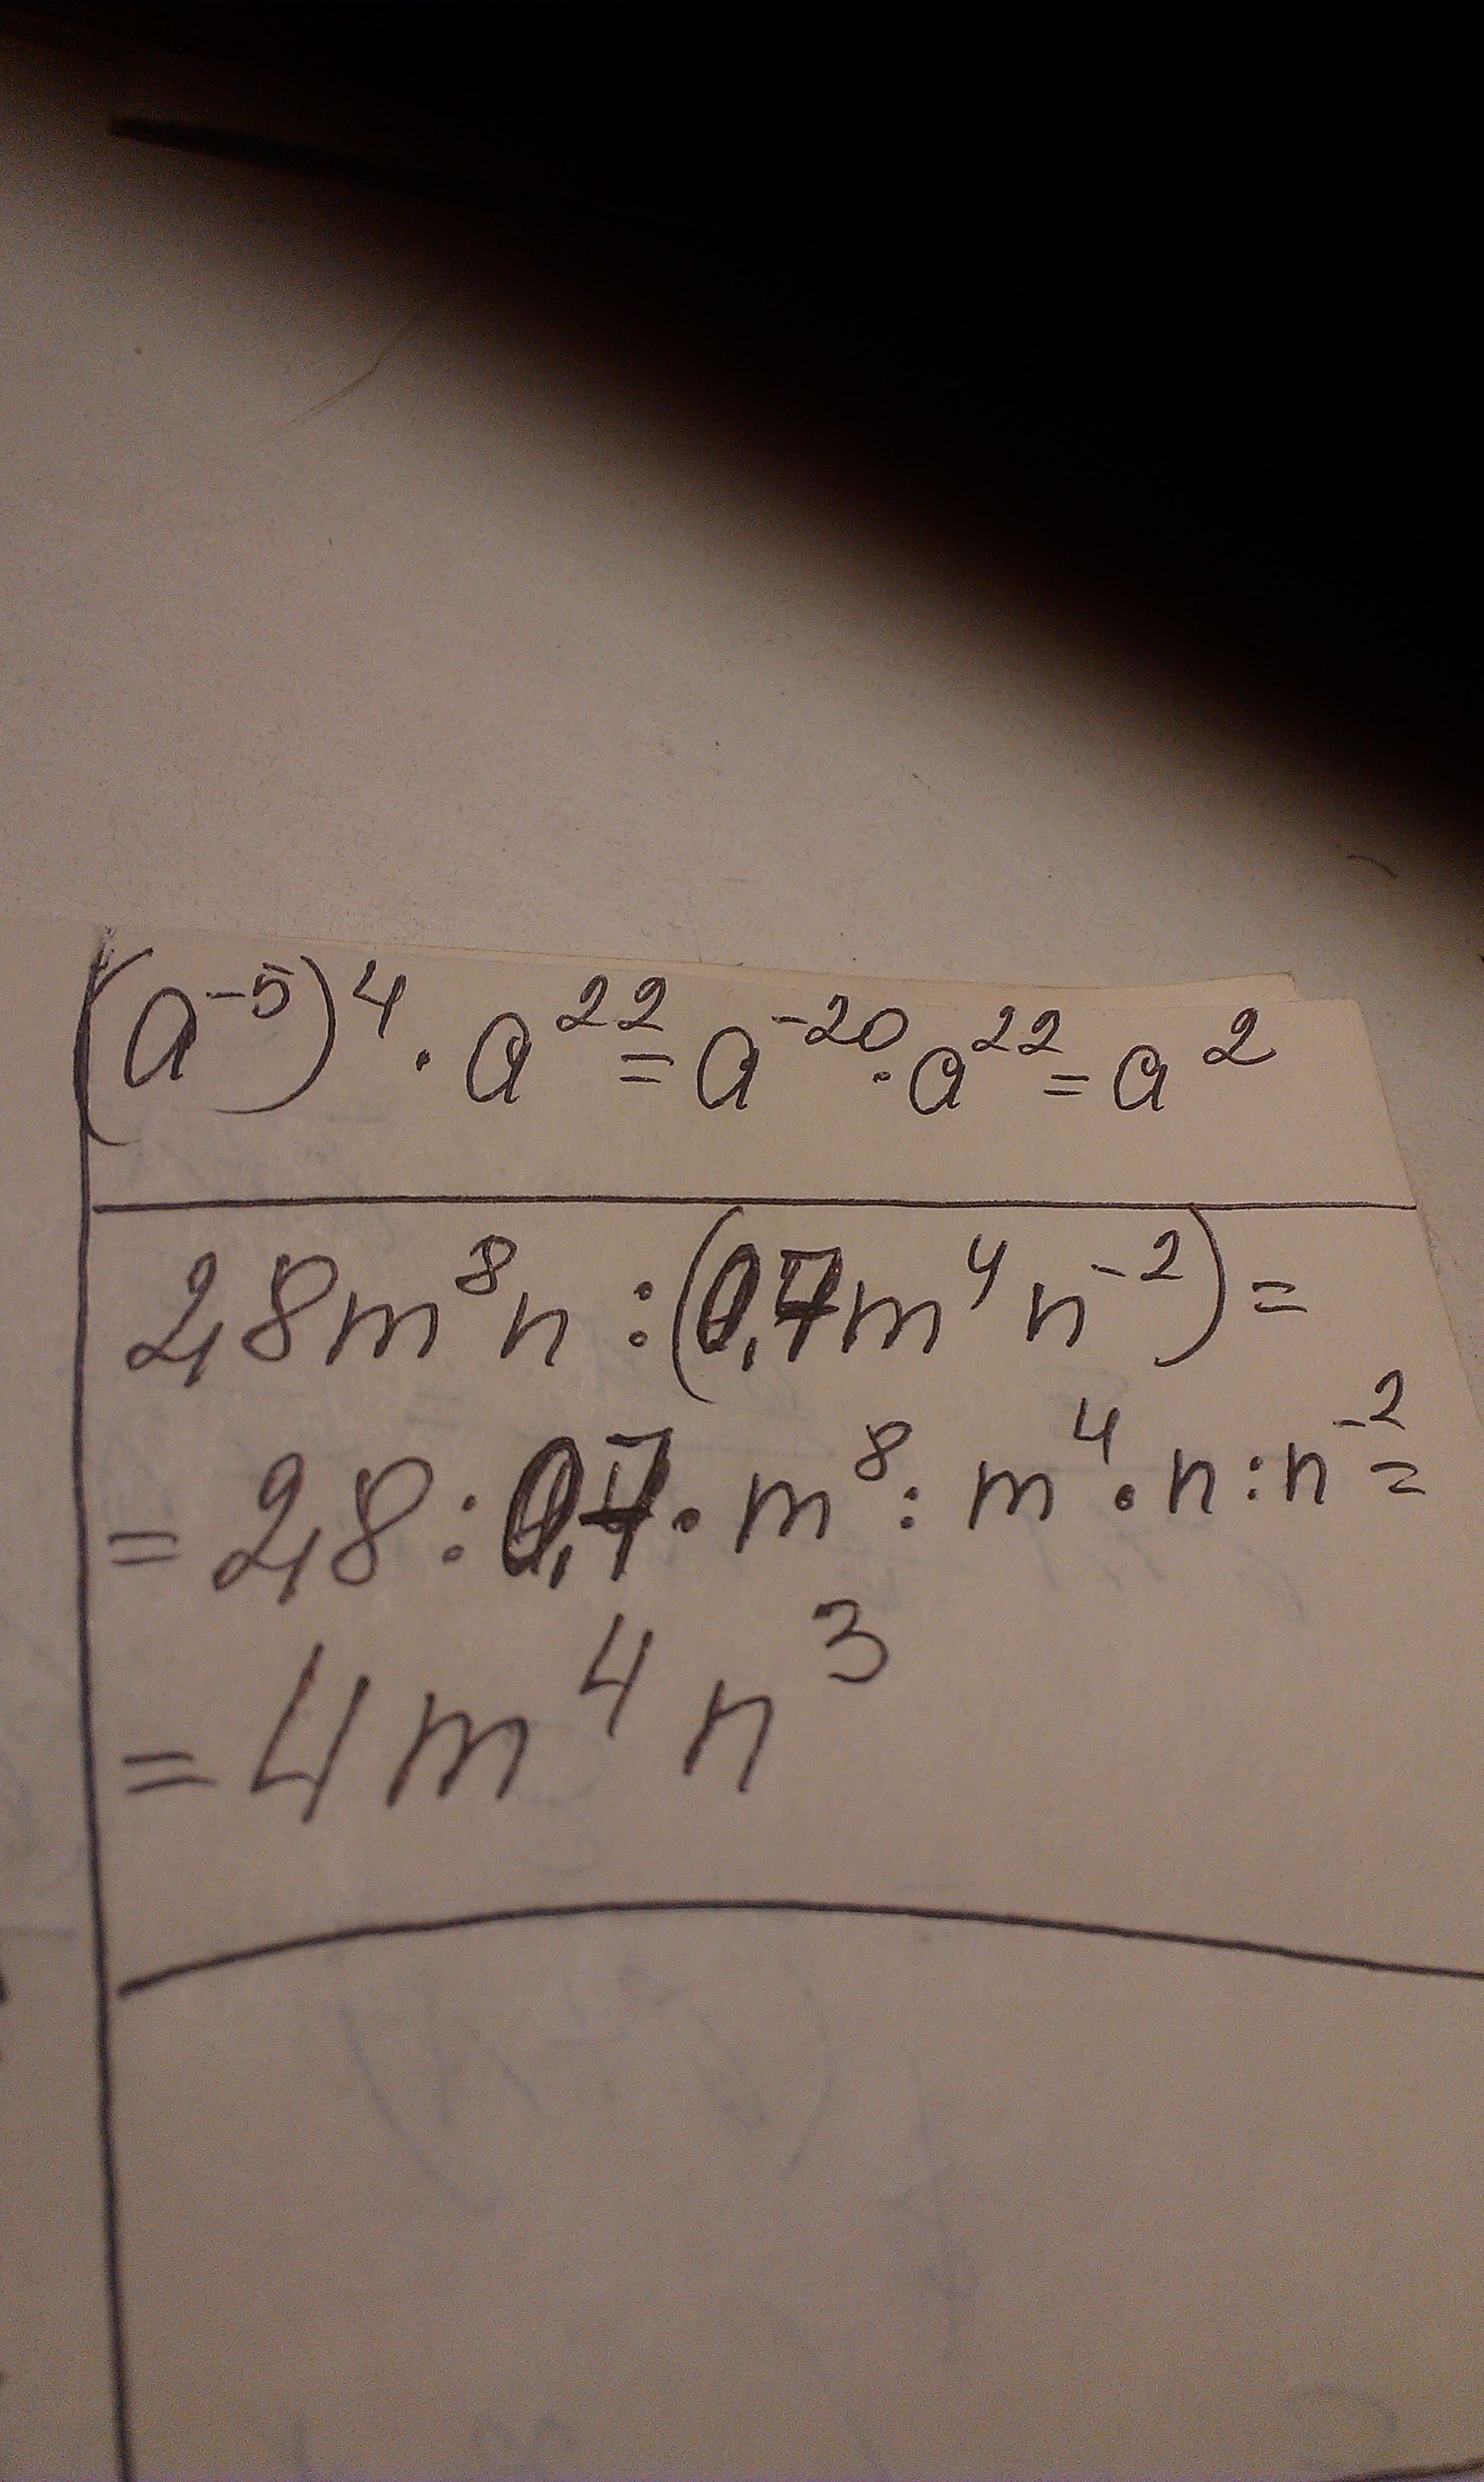 (a⁻⁵)⁴ · a²² = a⁻²⁰ · a²² = a²
2,8m⁸n : (0,7m⁴n⁻²) =
= 2,8 : 0,7 · m⁸ : m⁴ · n : n⁻² =
= 4m⁴n³